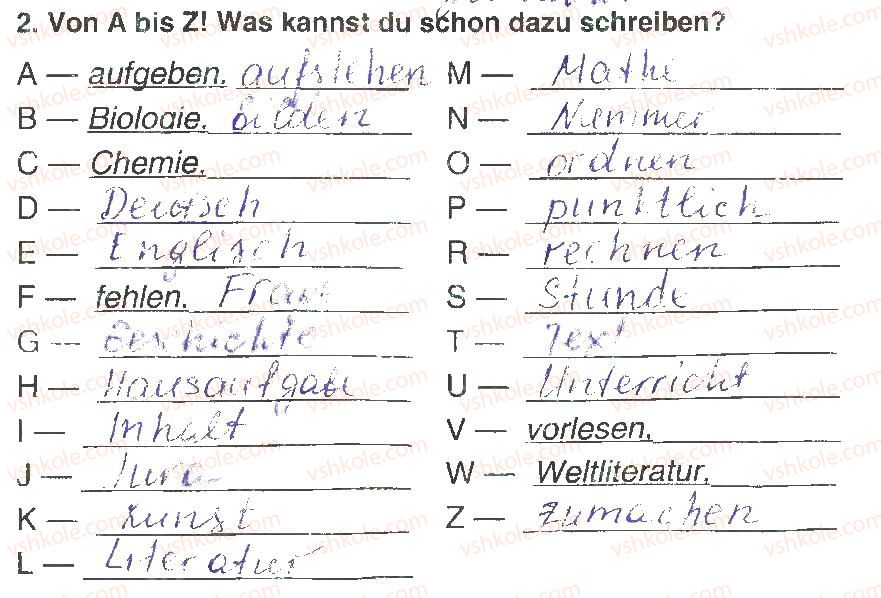 2. Von A bis Z! Was kannst du schon dazu schreiben?
A — aufgeben. aufstehen
B — Biologie. bilden
C — Chemie.
D — Deutsch
E — Englisch
F — fehlen. Frau
G — Geschichte
H — Hausaufgabe
I — Inhalt
J — Jura
K — Kunst
L — Literatur
M — Mathe
N — Nummer
O — ordnen
P — punktlich
R — rechnen
S — Stunde
T — Text
U — Unterricht
V — vorlesen,
W — Weltliteratur,
Z — zumachen
vshkole.com